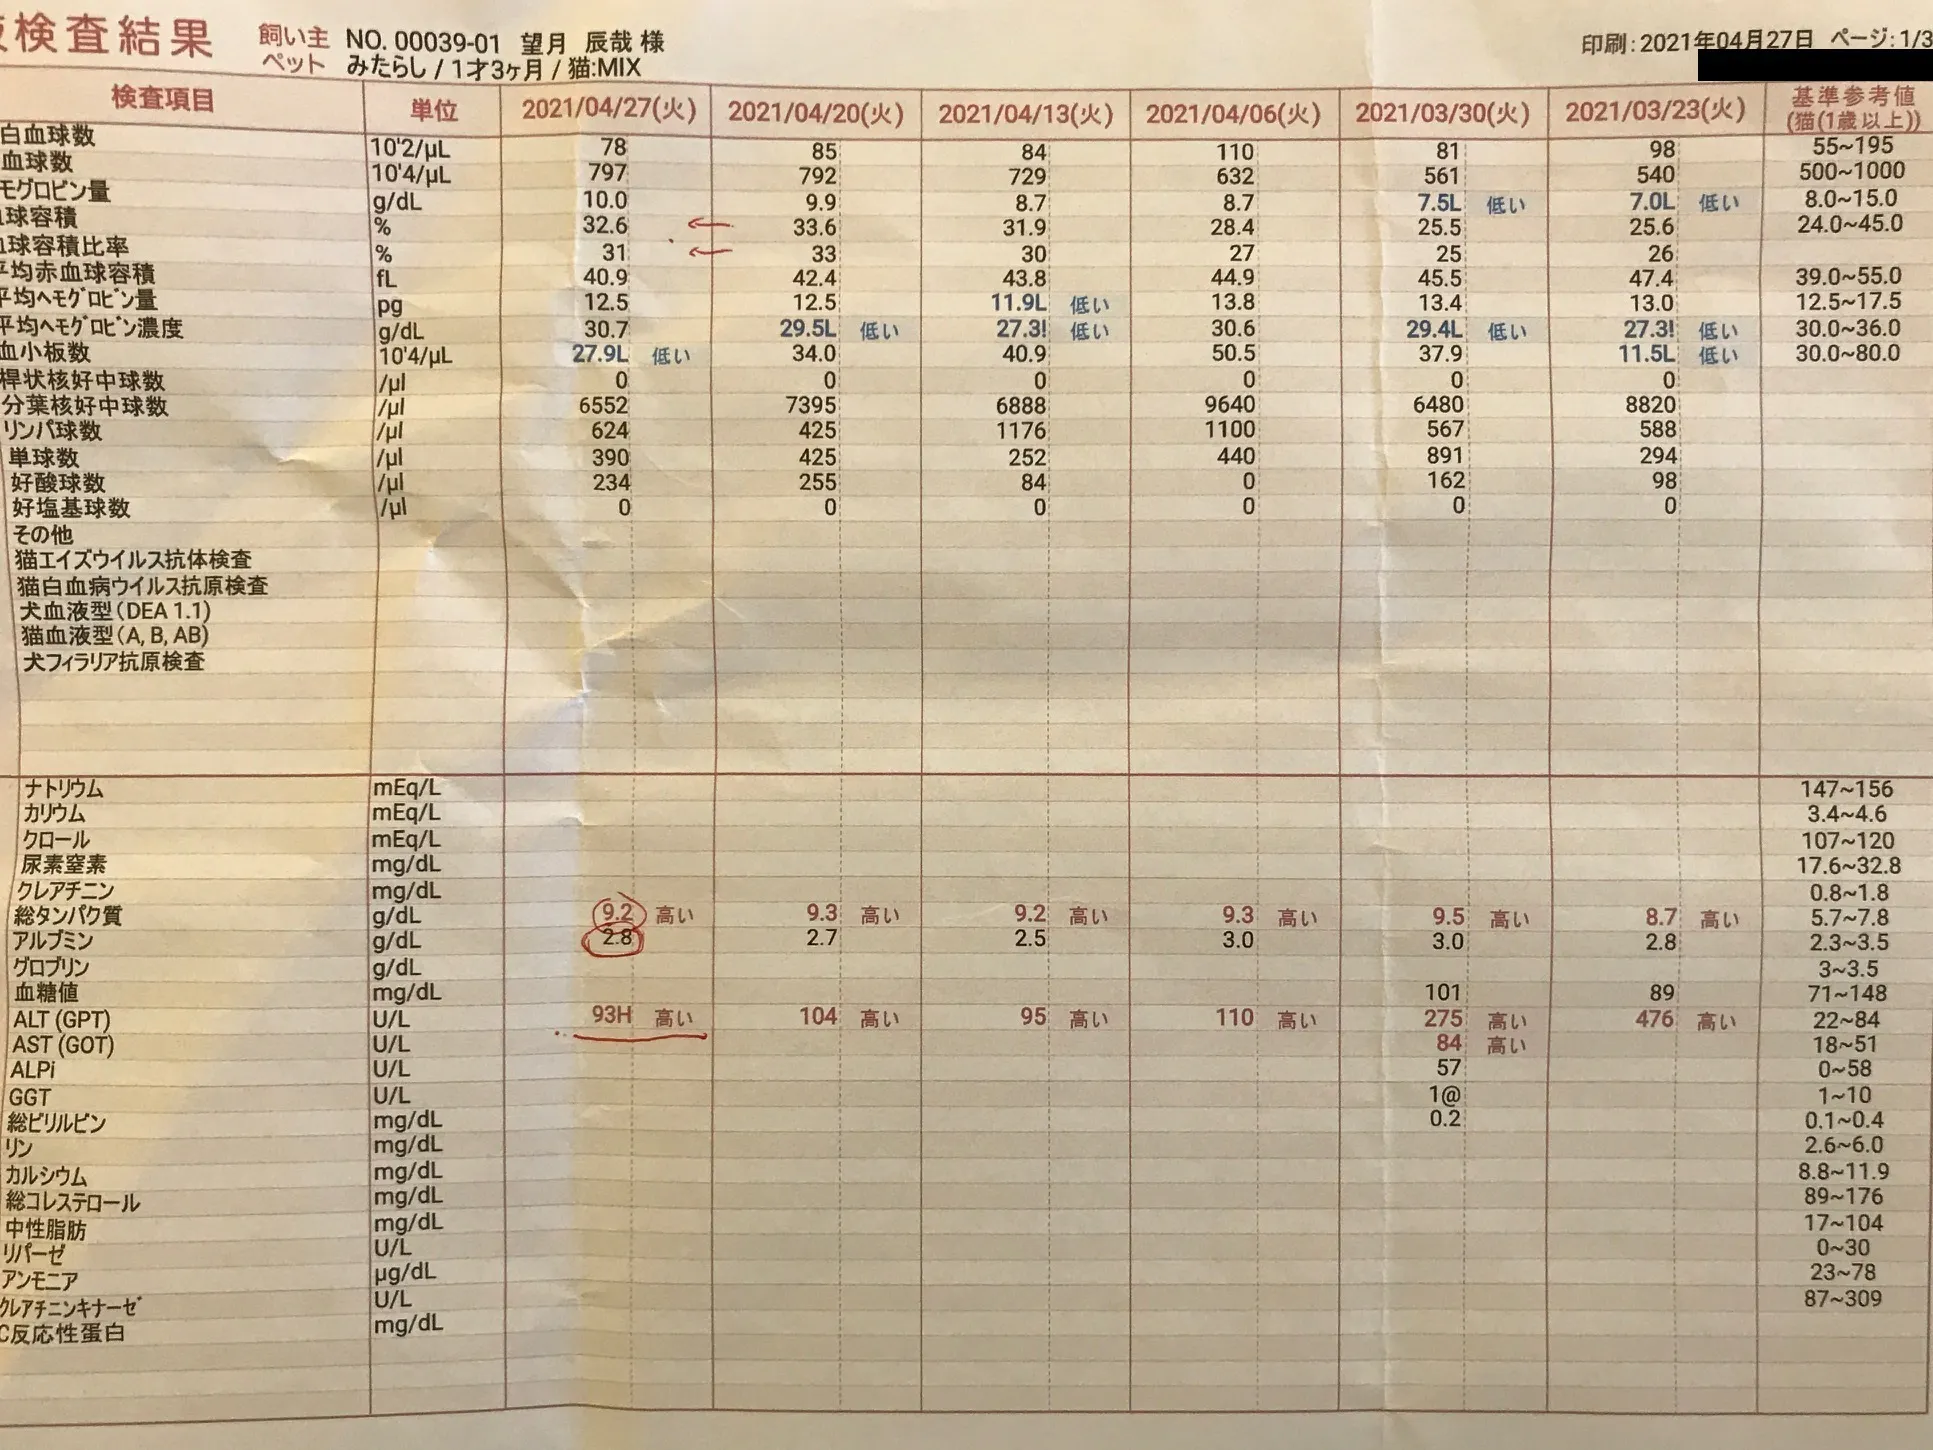 検査結果 飼い主 NO. 00039-01 望月 辰哉 様 印刷:2021年04月27日 ページ:1/3
ペット みたらし / 1才3ヶ月 / 猫:MIX
検査項目 単位 2021/04/27(火) 2021/04/20(火) 2021/04/13(火) 2021/04/06(火) 2021/03/30(火) 2021/03/23(火) 基準参考値 (猫(1歳以上))
白血球数 10'2/µL 78 85 84 110 81 98 55~195
血球数 10'4/µL 797 792 729 632 561 540 500~1000
モグロビン量 g/dL 10.0 9.9 8.7 8.7 7.5L 低い 7.0L 低い 8.0~15.0
球容積 % 32.6 ← 33.6 31.9 28.4 25.5 25.6 24.0~45.0
球容積比率 % 31 ← 33 30 27 25 26
平均赤血球容積 fL 40.9 42.4 43.8 44.9 45.5 47.4 39.0~55.0
平均ヘモグロビン量 pg 12.5 12.5 11.9L 低い 13.8 13.4 13.0 12.5~17.5
平均ヘモグロビン濃度 g/dL 30.7 29.5L 低い 27.3! 低い 30.6 29.4L 低い 27.3! 低い 30.0~36.0
血小板数 10'4/µL 27.9L 低い 34.0 40.9 50.5 37.9 11.5L 低い 30.0~80.0
桿状核好中球数 /µl 0 0 0 0 0 0
分葉核好中球数 /µl 6552 7395 6888 9640 6480 8820
リンパ球数 /µl 624 425 1176 1100 567 588
単球数 /µl 390 425 252 440 891 294
好酸球数 /µl 234 255 84 0 162 98
好塩基球数 /µl 0 0 0 0 0 0
その他
猫エイズウイルス抗体検査
猫白血病ウイルス抗原検査
犬血液型(DEA 1.1)
猫血液型(A, B, AB)
犬フィラリア抗原検査
ナトリウム mEq/L 147~156
カリウム mEq/L 3.4~4.6
クロール mEq/L 107~120
尿素窒素 mg/dL 17.6~32.8
クレアチニン mg/dL 0.8~1.8
総タンパク質 g/dL 9.2 高い 9.3 高い 9.2 高い 9.3 高い 9.5 高い 8.7 高い 5.7~7.8
アルブミン g/dL 2.8 2.7 2.5 3.0 3.0 2.8 2.3~3.5
グロブリン g/dL 3~3.5
血糖値 mg/dL 101 89 71~148
ALT (GPT) U/L 93H 高い 104 高い 95 高い 110 高い 275 高い 476 高い 22~84
AST (GOT) U/L 84 高い 18~51
ALPi U/L 57 0~58
GGT U/L 1@ 1~10
総ビリルビン mg/dL 0.2 0.1~0.4
リン mg/dL 2.6~6.0
カルシウム mg/dL 8.8~11.9
総コレステロール mg/dL 89~176
中性脂肪 mg/dL 17~104
リパーゼ U/L 0~30
アンモニア µg/dL 23~78
クレアチンキナーゼ U/L 87~309
C反応性蛋白 mg/dL